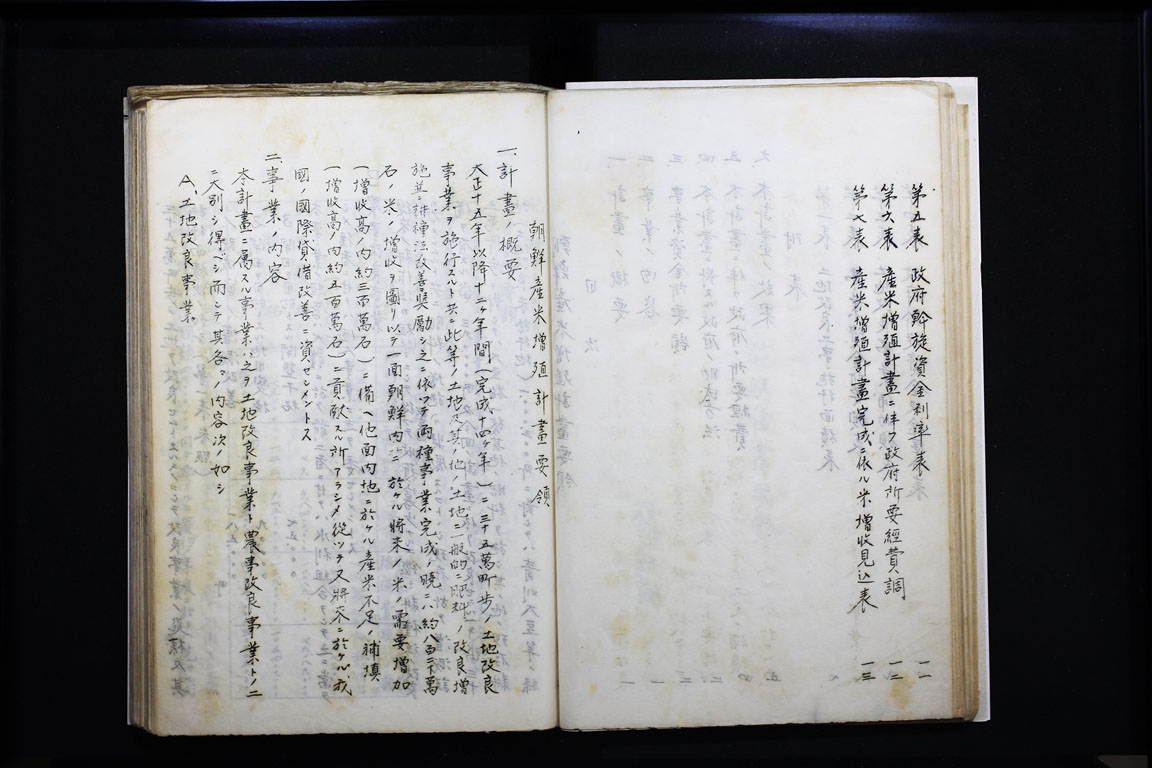 第五表 政府斡旋資金利率表 一一
第六表 産米增殖計畫ニ伴フ政府所要經費調 一二
第七表 産米增殖計畫完成ニ依ル米增收見込表 一三
朝鮮産米增殖計畫要領
一、計畫ノ概要
大正十五年以降十二ヶ年間(完成、十四ヶ年)ニ三十五萬町歩ノ土地改良
事業ヲ施行スルト共ニ此等ノ土地及其ノ他ノ土地ニ一般的ニ肥料ノ改良增
施並ニ耕種法改善奬勵シ之ニ依ツテ兩種事業完成ノ曉ニハ約八百二十萬
石ノ米ノ增收ヲ圖リ以テ一面朝鮮内ニ於ケル將來ノ米ノ需要增加
(增收高ノ内約三百萬石)ニ備ヘ他面内地ニ於ケル産米不足ノ補塡
(增收高ノ内約五百萬石)ニ貢献スル所アラシメ從ツテ又將來ニ於ケル我
國ノ國際貸借改善ニ資セントス
二、事業ノ内容
本計畫ニ屬スル事業ハ之ヲ土地改良事業ト農事改良事業トノ二
ニ大別シ得ベシ而シテ其各々ノ内容次ノ如シ
A、土地改良事業